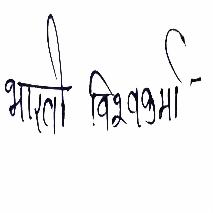 भारती विश्वकर्मा